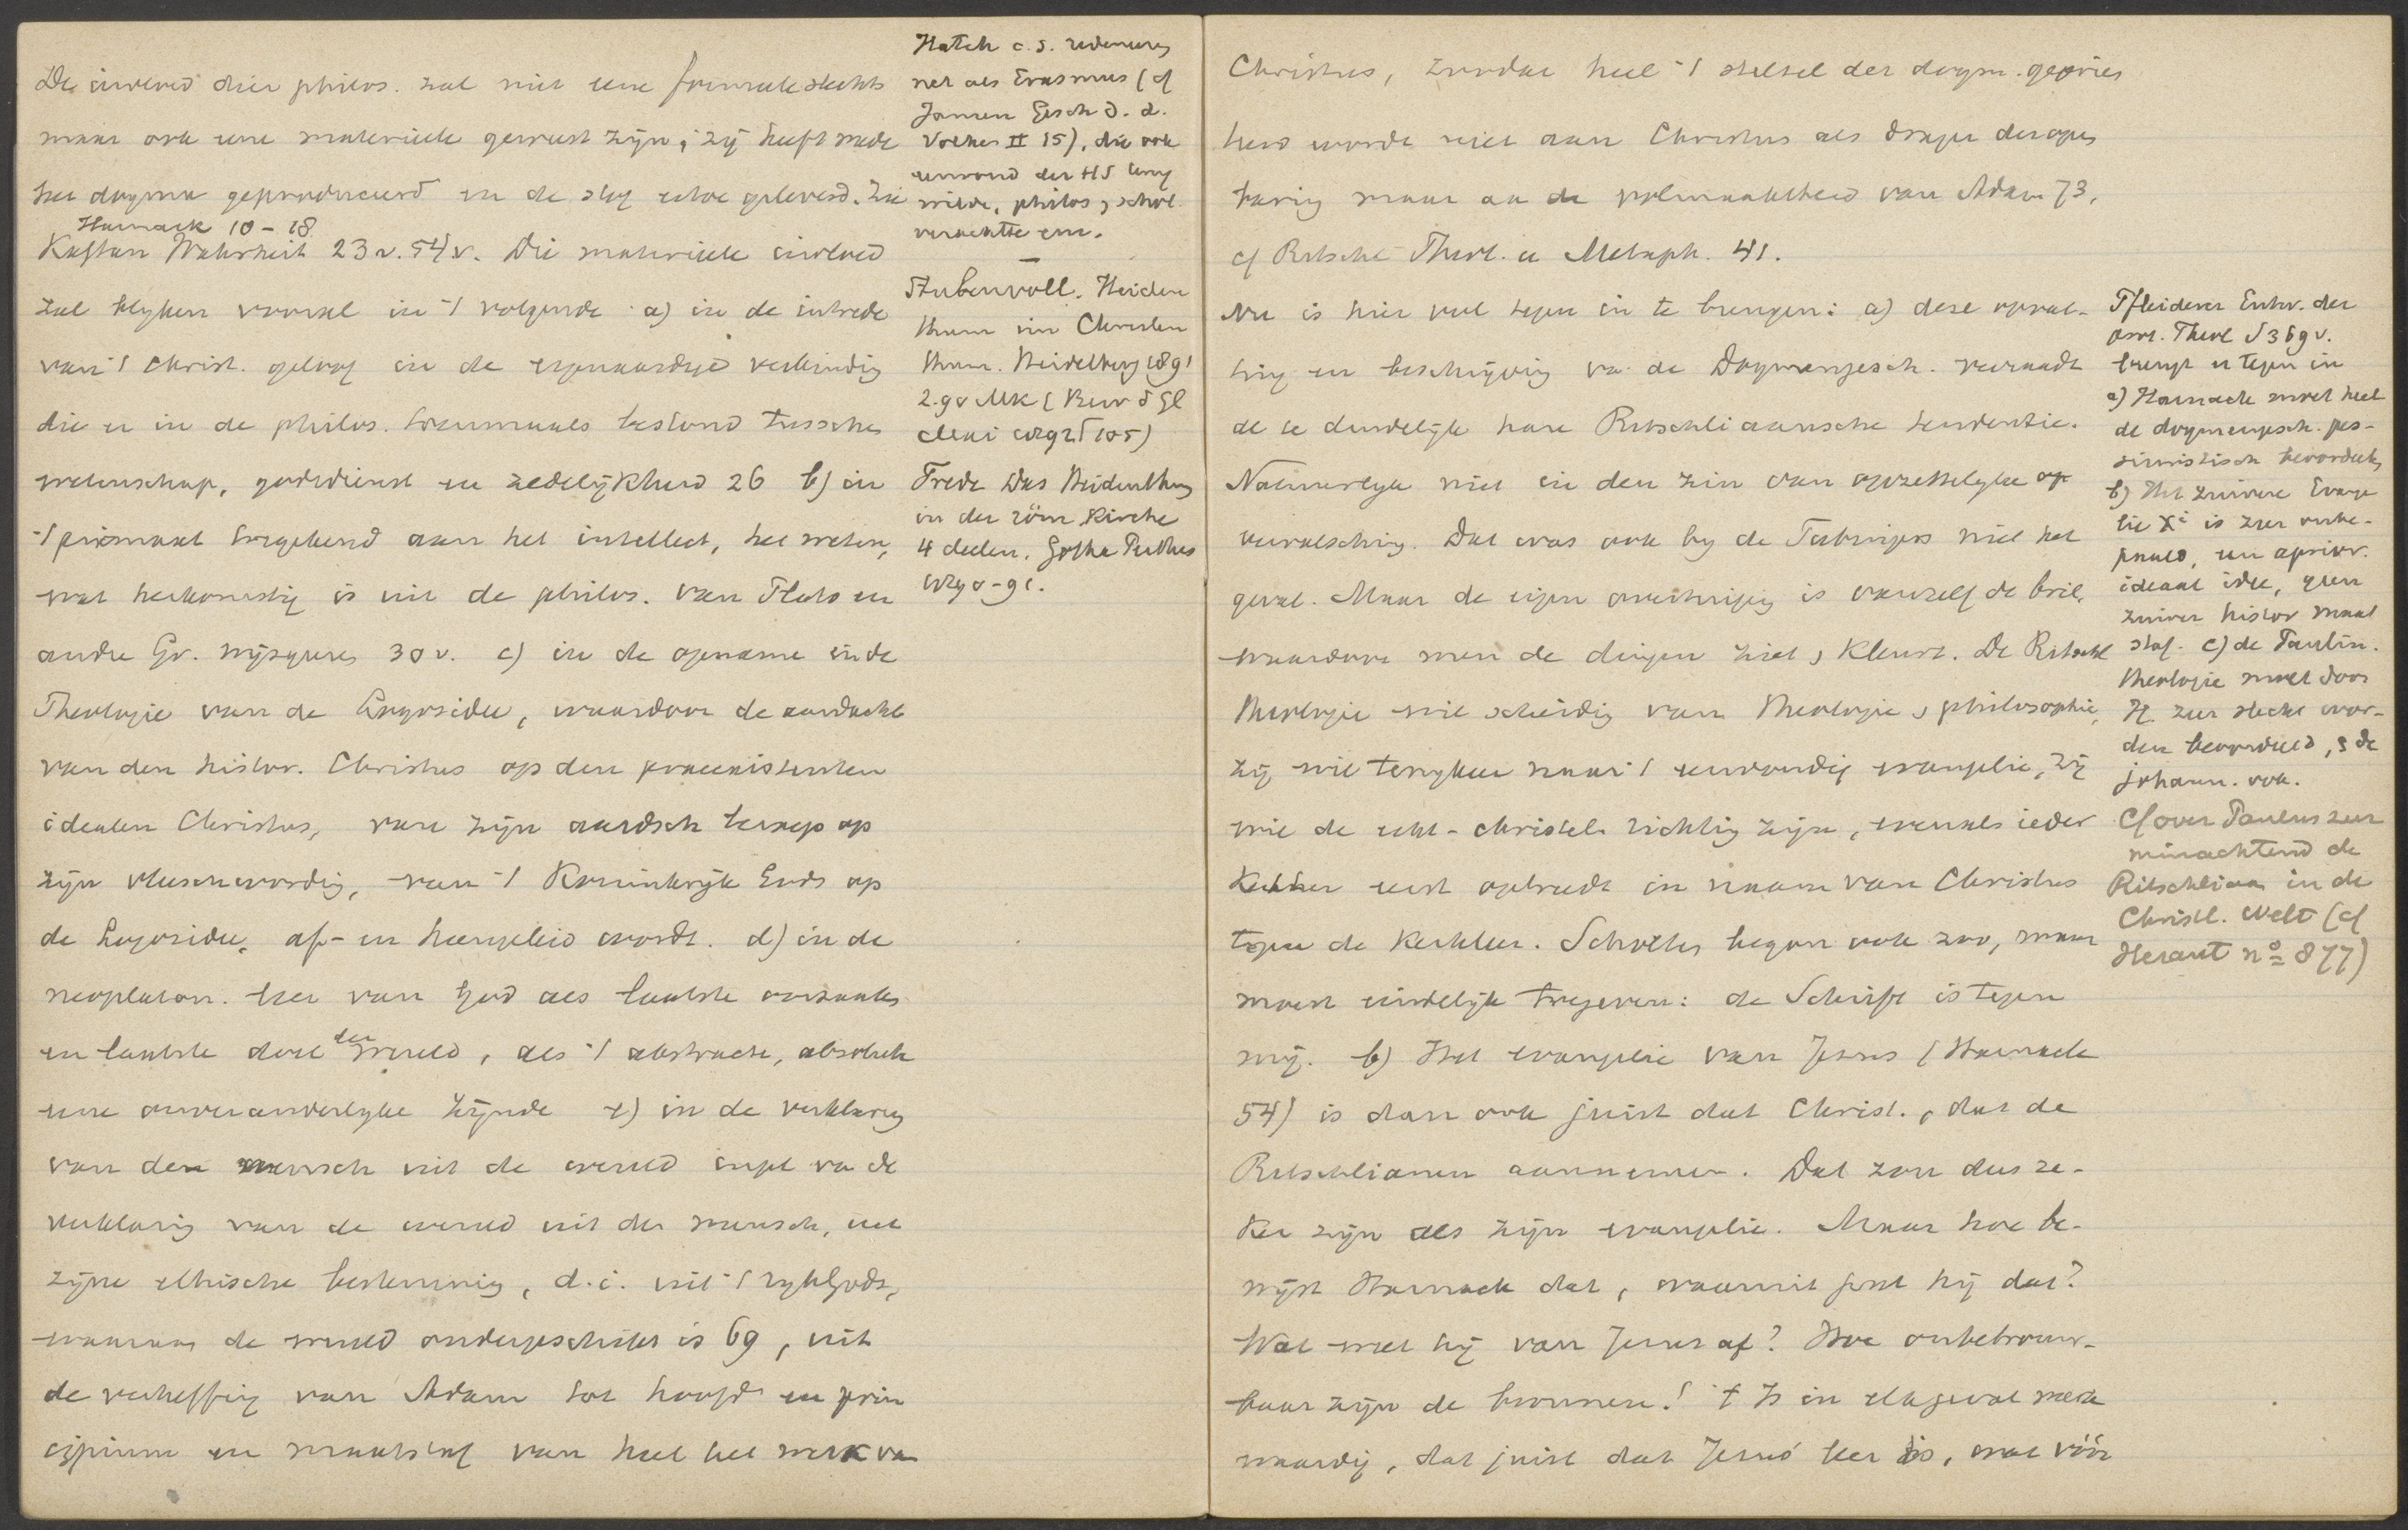 De invloed dier philos. zal niet eene formeele slechts
maar ook eene materieele geweest zijn; zij heeft mede
het dogma geproduceerd en de stof ertoe geleverd. Zie
Harnack 10-18
Kaftan Wahrheit 23v. 54v. Die materieele invloed
zal blijken vooral in 't volgende a) in de intrede
van 't Christ. geloof in de eigenaardige verbinding
die er in de philos. toenmaals bestond tusschen
wetenschap, godsdienst en zedelijkheid 26 b) in
't primaat toegekend aan het intellect, het weten,
wat herkomstig is uit de philos. van Plato en
andre Gr. wijsgeeren 30v. c) in de opname in de
Theologie van de Logosidee, waardoor de aandacht
van den histor. Christus op den praeexistenten
idealen Christus, van zijn aardsch beroep op
zijn Menschwording, van 't Koninkrijk Gods op
de Logosidee, af- en heengeleid wordt. d) in de
neoplaton. leer van God als laatste oorzaak
en laatste doel der wereld, als 't abstracte, absolute
eene onveranderlijke Zijnde e) in de verklaring
van den mensch uit de wereld inpl. va de
verklaring van de wereld uit den mensch, uit
zijne ethische bestemming, d.i. uit 't rijk Gods,
waaraan de wereld ondergeschikt is 69, uit
de verheffing van Adam tot hoofd en prin
cipium en maatstaf van heel het werk va
Hatch c.s. redeneeren
net als Erasmus (cf
Jansen Gesch. d. d.
Volkes II 15), die ook
eenvoud der HS terug
wilde, philos, schol.
verachtte enz.
Stubenvoll. Heiden
thum im Christen
thum. Heidelberg 1891
2.90 Mk (Bew d Gl
Frede Das Heidenthum
in der röm Kirche
4 deelen. Gotha Perthes
1890-91.
Christus, zoodat heel 't stelsel der dogm. georiën
teerd wordt niet aan Christus als drager der open
baring maar aa de volmaaktheid van Adam 73,
cf Ritschl Theol. u Metaph. 41.
Nu is hier veel tegen in te brengen: a) deze opvat-
ting en beschrijving va de Dogmengesch. verraadt
al te duidelijk hare Ritschliaansche tendentie.
Natuurlijk niet in den zin van opzettelijke op
vervalsching. Dat was ook bij de Tubingers niet het
geval. Maar de eigen overtuiging is vanzelf de bril,
waardoor men de dingen ziet, kleurt. De Ritschl
theologie wil scheiding van theologie, philosophie,
zij wil terugkeer naar 't eenvoudig evangelie, zij
wil de echt-christel. richting zijn, evenals ieder
Ketter eerst optreedt in naam van Christus
tegen de Kerkleer. Scholten begon ook zoo, maar
moest eindelijk toegeven: de Schrift is tegen
mij. b) Het evangelie van Jezus (Harnack
54) is dan ook juist dat Christ., dat de
Ritschlianen aannemen. Dat zou dus ze-
ker zijn als zijn evangelie. Maar hoe be-
wijst Harnack dat, waaruit put hij dat?
Wat weet hij van Jezus af? Hoe onbetrouw-
baar zijn de bronnen! 't Is in elk geval merk
waardig, dat juist dat Jezus' leer is, wat vóór
Pfleiderer Entw. der
prot. Theol S 369 v.
brengt er tegen in
a) Harnack moet heel
de dogmengesch. pes-
simistisch beoordeelen
b) Het zuivere Evange
lie Xi is zeer onbe-
paald, een aprior.
ideaal idee, geen
zuiver histor maat
staf. c) de Paulin.
theologie moet door
H. zeer slecht wor-
den beoordeeld, de
johann. ook.
Cf over Paulus zeer
minachtend de
Ritschliaan in de
Christl. Welt (cf
Heraut no 877)